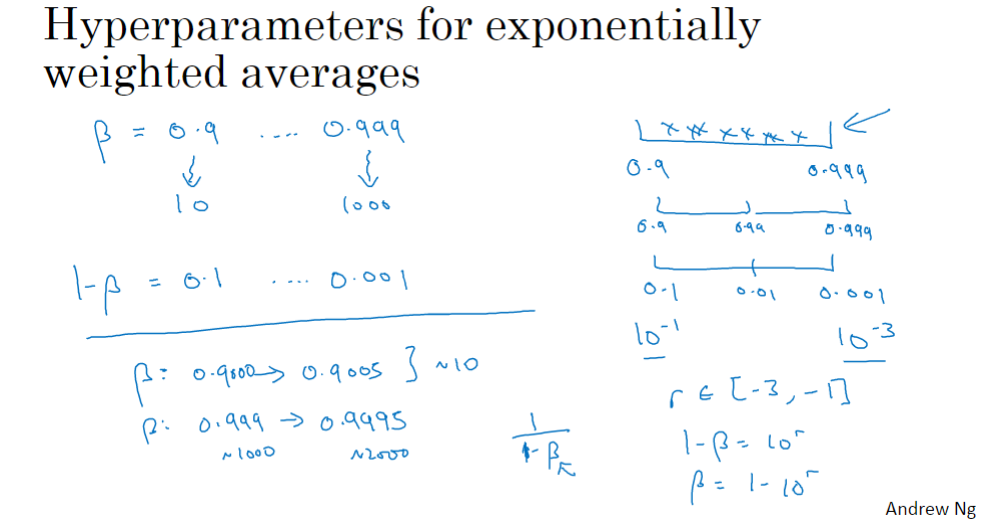 Hyperparameters for exponentially
weighted averages
β = 0.9 .... 0.999
10 1000
1-β = 0.1 .... 0.001
β: 0.9000 → 0.9005 } ~10
β: 0.999 → 0.9995
~1000 ~2000
1
1-β
0.9 0.999
0.9 0.99 0.999
0.1 0.01 0.001
10⁻¹ 10⁻³
r ∈ [-3, -1]
1-β = 10ʳ
β = 1-10ʳ
Andrew Ng